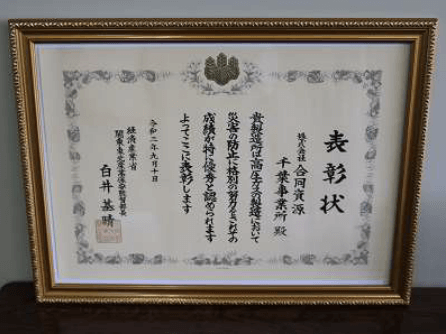 表彰状
株式会社 合同資源
千葉事業所 殿
貴製造所は高圧ガスの製造において
災害の防止に格別の努力をされその
成績が特に優秀と認められます
よってここに表彰します
令和二年九月十日
経済産業省
関東東北産業保安監督部長
白井 基晴